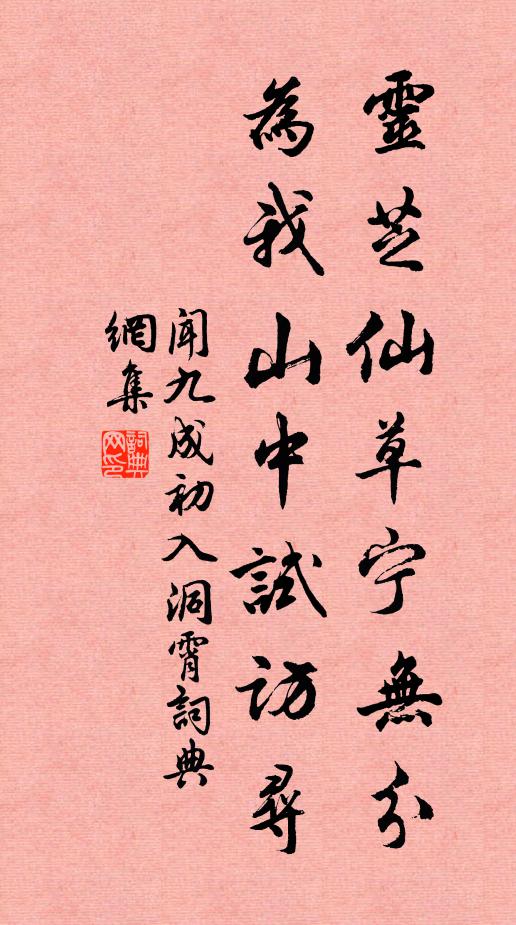 靈芝仙草宁無分
為我山中試訪尋
聞九成初入洞霄詞典
網集
詞典網印